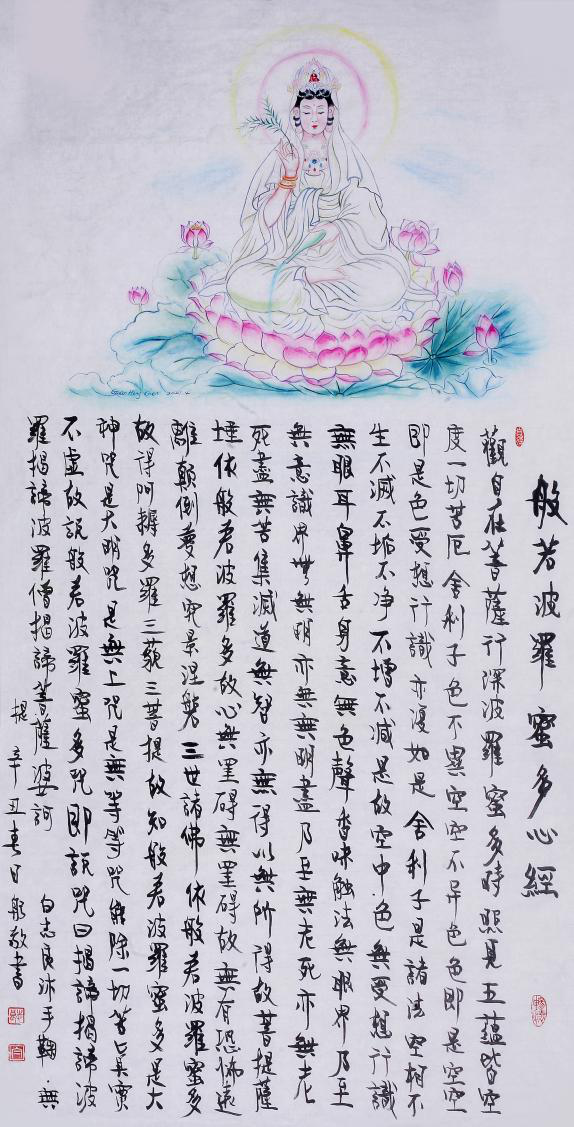 般若波羅蜜多心經
觀自在菩薩行深波羅蜜多時照見五蘊皆空
度一切苦厄舍利子色不異空空不异色色即是空空
即是色受想行識亦復如是舍利子是諸法空相不
生不滅不垢不净不增不減是故空中色無受想行識
無眼耳鼻舌身意無色聲香味触法無眼界乃至
無意識界無無明亦無無明盡乃至無老死亦無老
死盡無苦集滅道無智亦無得以無所得故菩提薩
埵依般若波羅多故心無罣碍無罣碍故無有恐怖遠
離顛倒夢想究竟涅槃三世諸佛依般若波羅蜜多
故得阿耨多羅三藐三菩提故知般若波羅蜜多是大
神咒是大明咒是無上咒是無等等咒能除一切苦真實
不虛故說般若波羅蜜多咒即說咒曰揭諦揭諦波
羅揭諦波羅僧揭諦菩薩婆訶 白志良沐手
提 辛丑春日 敬書
2021.4